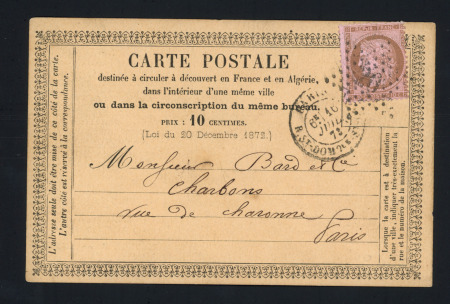 L'adresse seule doit être mise de ce côté de la carte.
L'autre côté est réservé à la correspondance.
CARTE POSTALE
destinée à circuler à découvert en France et en Algérie,
dans l'intérieur d'une même ville
ou dans la circonscription du même bureau.
PRIX : 10 CENTIMES.
(Loi du 20 Décembre 1872.)
Monsieur Bard et Cie
Charbons
rue de charonne
Paris
Lorsque la carte est à destination
d'une ville, indiquer très-exactement la
rue et le numéro de la maison.
PARIS